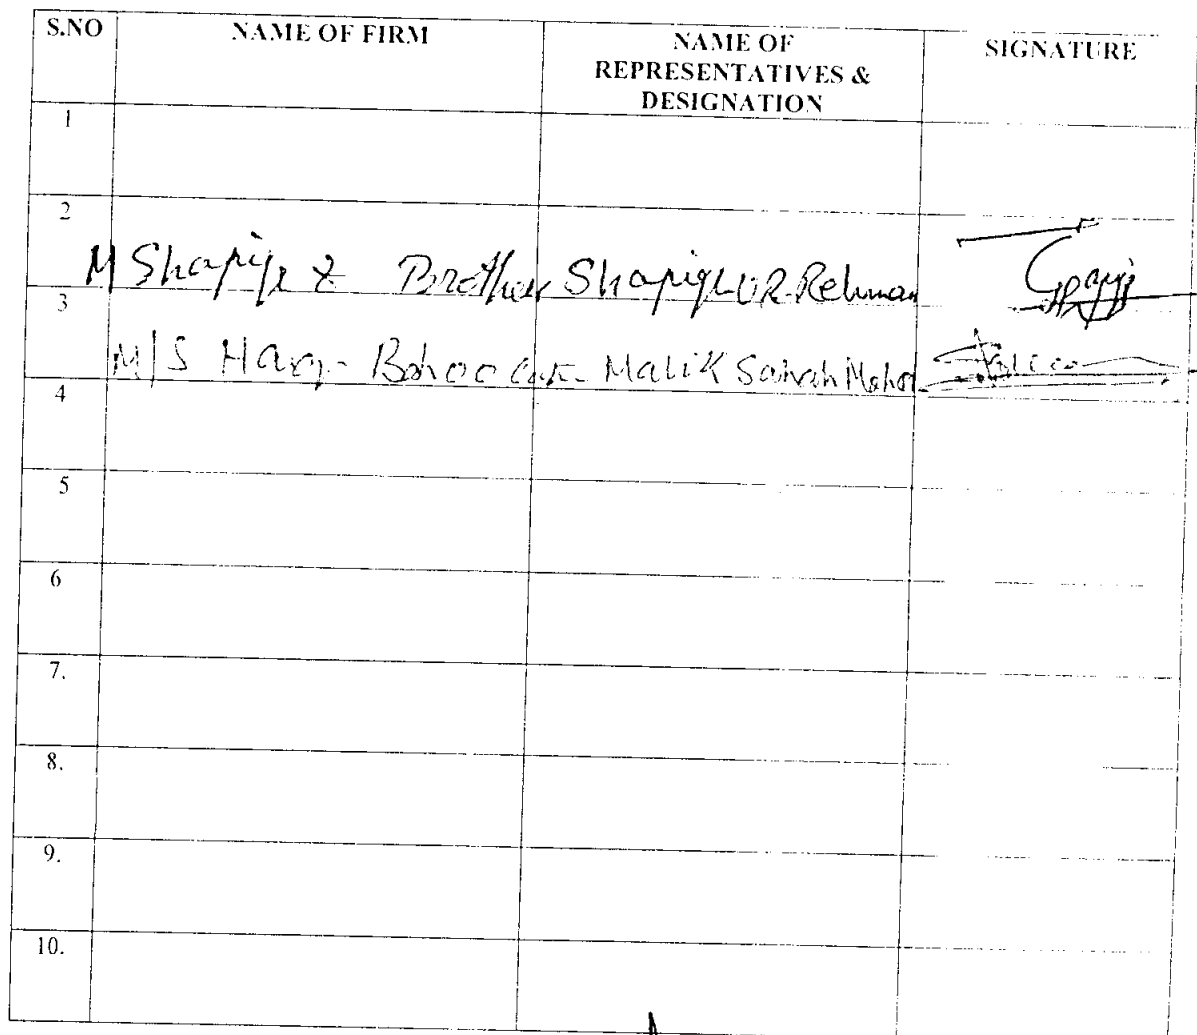 S.NO NAME OF FIRM NAME OF REPRESENTATIVES & DESIGNATION SIGNATURE
1
2
M Shafiq & Brother Shafiq UR Rehman
3
M/S Haq Bahoo Malik
4
5
6
7.
8.
9.
10.